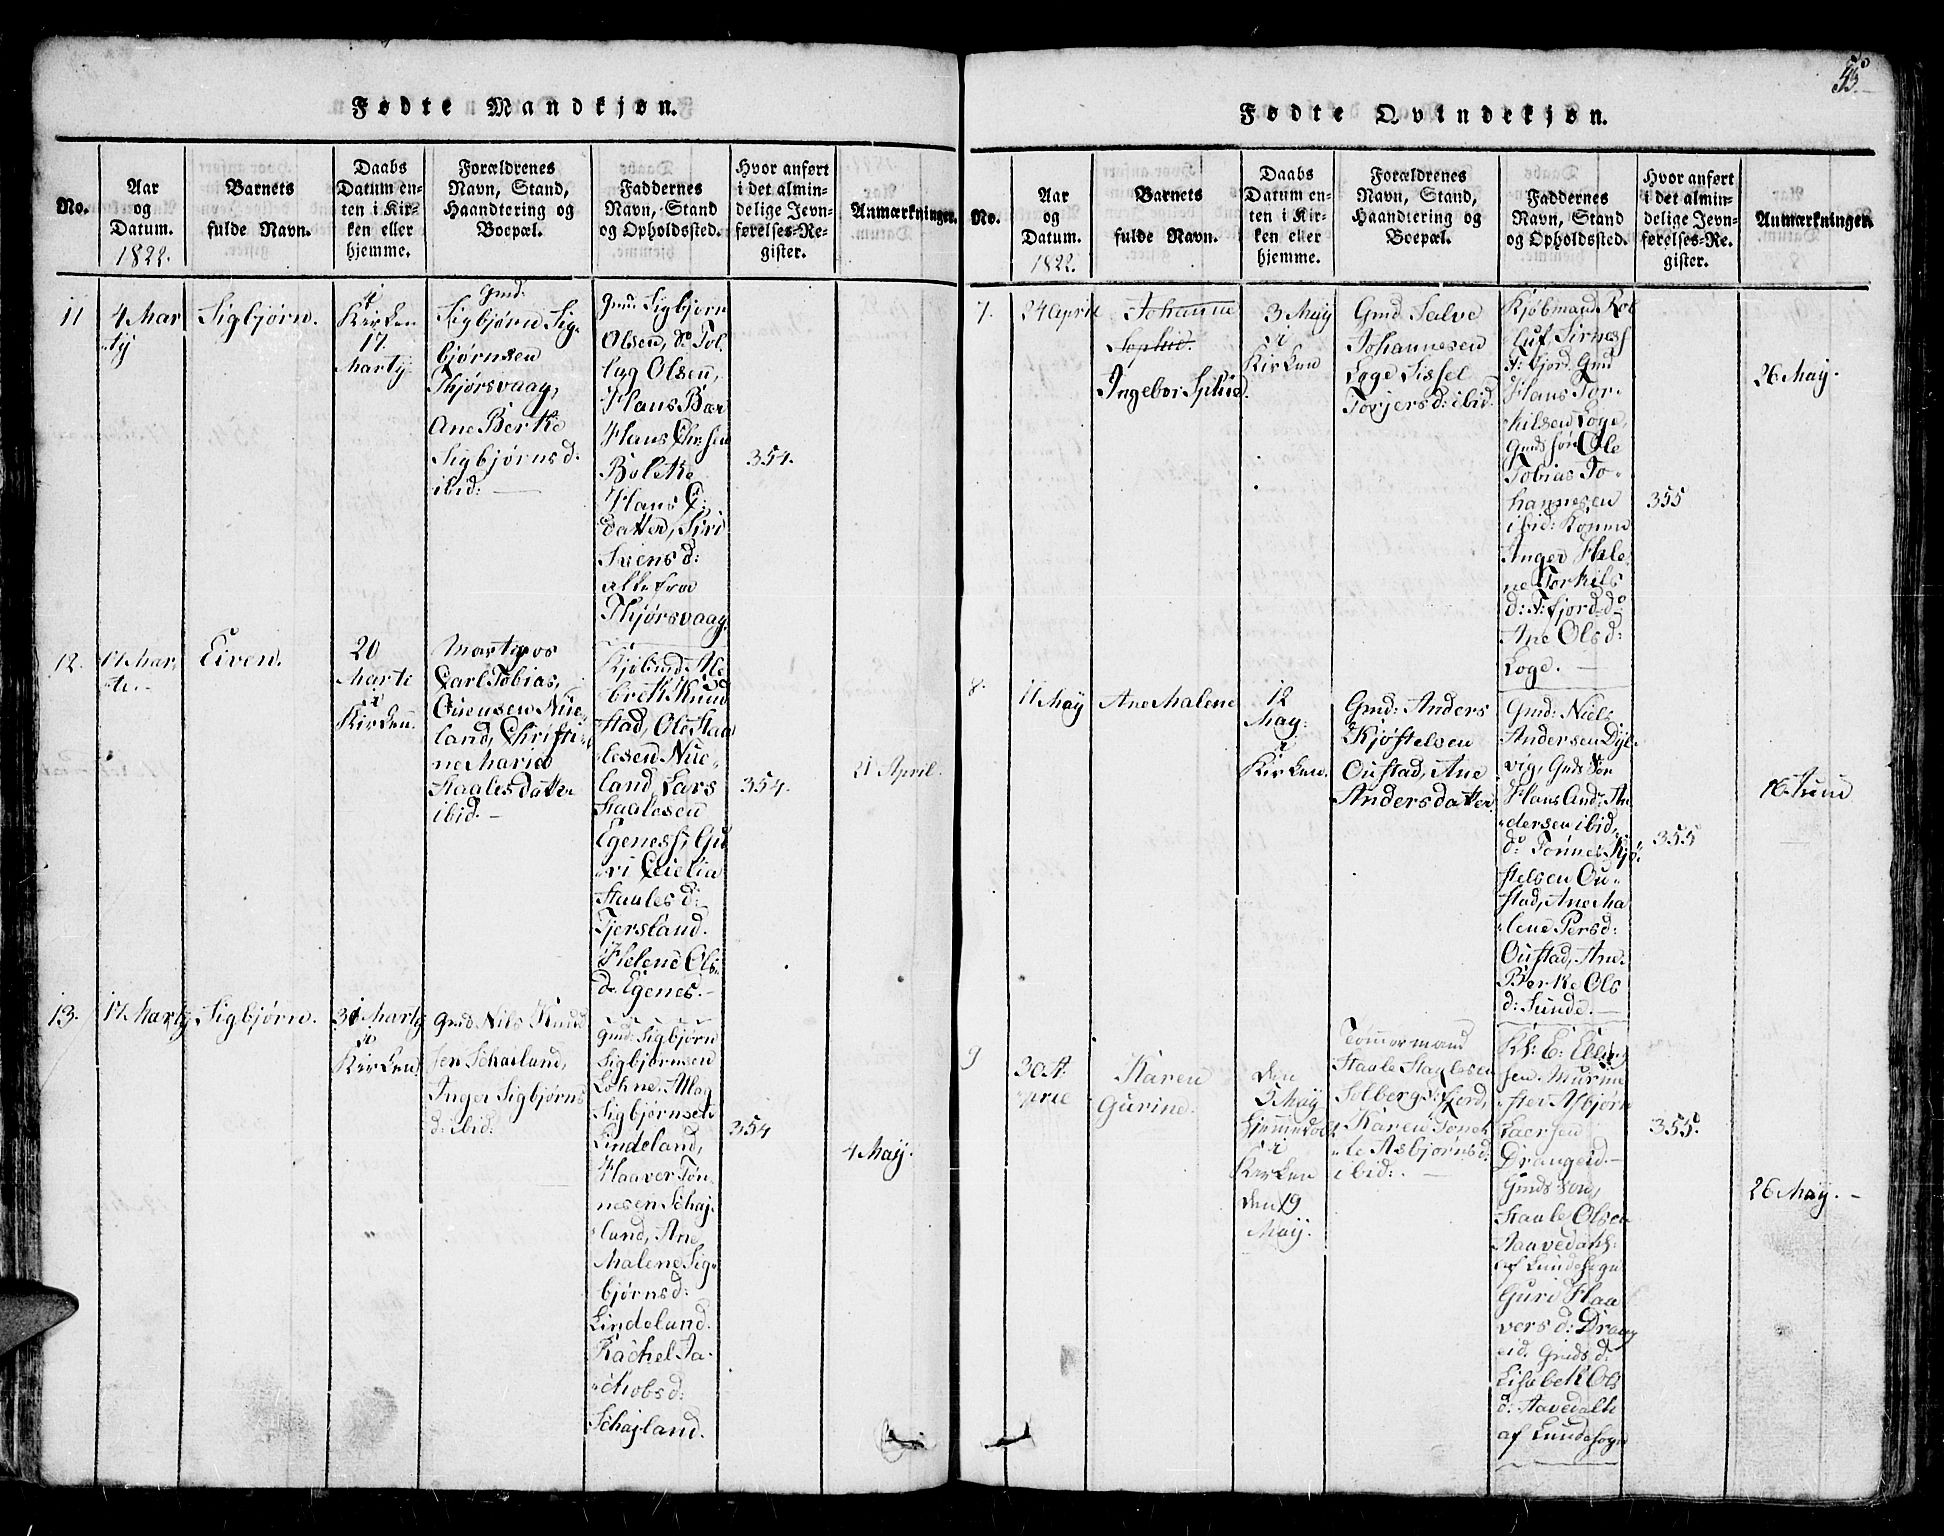 Fødte Mandkjøn.
No.
Aar
og
Datum.
1822.
Barnets
fulde Navn.
Daabs
Datum en-
ten i Kir-
ken eller
hjemme.
Forældrenes
Navn, Stand,
Haandtering og
Boepæl.
Faddernes
Navn, Stand
og Opholdssted.
Hvor anført
i det almin-
delige Jevn-
førelses-Re-
gister.
Anmærkninger.
11
4 Mar
ty
Sigbjørn.
i
Kirken
17
Marty
Gmd.
Sigbjørn Sig-
bjørnsen
Thjørsvaag,
Ane Berte
Sigbjørns d.
ibid:
Gmd Sigbjørn
Olsen, do Tol
lag Olsen,
Hans Bær
Hans Chr:sen
Bolette
Hans C:
datter, Siri
Svens d:
alle fra
Thjørsvaag.
354.
12.
17 Mar,
ti.
Eiven.
20
Marti
i
Kirken
Carl Tobias,
Eivensen Nue-
land, Christi-
ne Marie
Staalesdatter
ibid. -
brek Knud
stad, Ole Staa
lesen Nue-
land, Lars
Staalesen
Egeness, Gu
ri Cecilia
Staales d:
Tjersland.
Helene Ols
d. Egenes. -
354.
21 April.
13.
17 Marty
Sigbjørn.
31 Marty
i
Kirken
Gmd Nils Knud
sen Schailand,
Inger Sigbjørns
d: ibid:
Gmd: Sigbjørn
Sigbjørnsen
Sigbjørnsen
Lindeland,
Haaver Tøn-
nesen Schaj-
land, Ane
Malene Sig-
bjørns d:
Lindeland.
Rachel Ja-
chobs d:
Schajland.
354
4 May.
55.
Fødte Qvindekjøn.
No.
Aar
og
Datum.
1822.
Barnets
fulde Navn.
Daabs
Datum en-
ten i Kir-
ken eller
hjemme.
Forældrenes
Navn, Stand,
Haandtering og
Boepæl.
Faddernes
Navn, Stand
og Opholdssted.
Hvor anført
i det almin-
delige Jevn-
førelses-Re-
gister.
Anmærkninger.
7.
24 April
Johanne
Sophie.
3 May
i
Kirken
Gmd Salve
Johannesen
Loge Sissel
Torjers d: ibid.
Kjøbmand Rol
Hans Tor-
kilsen Loge,
Ole
Tobias Jo-
hannesen
ibid: Konen
Anger Hele
ne Torkils
d: A: fjord do
Ane Ols d:
Loge. -
355
26 May.
8.
11 May
Ane Malene
12
May:
i
Kirken.
Gmd: Anders
Kjøstelsen
Oustad, Ane
Andersdatter
Gmd: Niels
Andersen Dyl-
vig, Gmds Søn
Hans And: An
dersen ibid,
do Tønnes Kjø-
stelsen Ou-
stad, Ane Ma
lene Pers d:
Oustad, Ane
Berte Ols
d: Sunde. -
355
16 Juni
9
30 A
pril
Karen
Gurine.
den
5 May
Hjemmedøbt
i
Kirken
den 19
May.
Tømmermand
Staale Staalesen
Solbergs fjord,
Karen Tonet
te Asbjørns d:
ibid: -
Asbjørn
Drangeid. -
Gmds Søn,
Staale Olsen
af Lundesogn
Guri Haa
vers d: Drang
eid. Gmds d:
Lisabek Ols
d:
af Lundesogn
355.
26 May. -